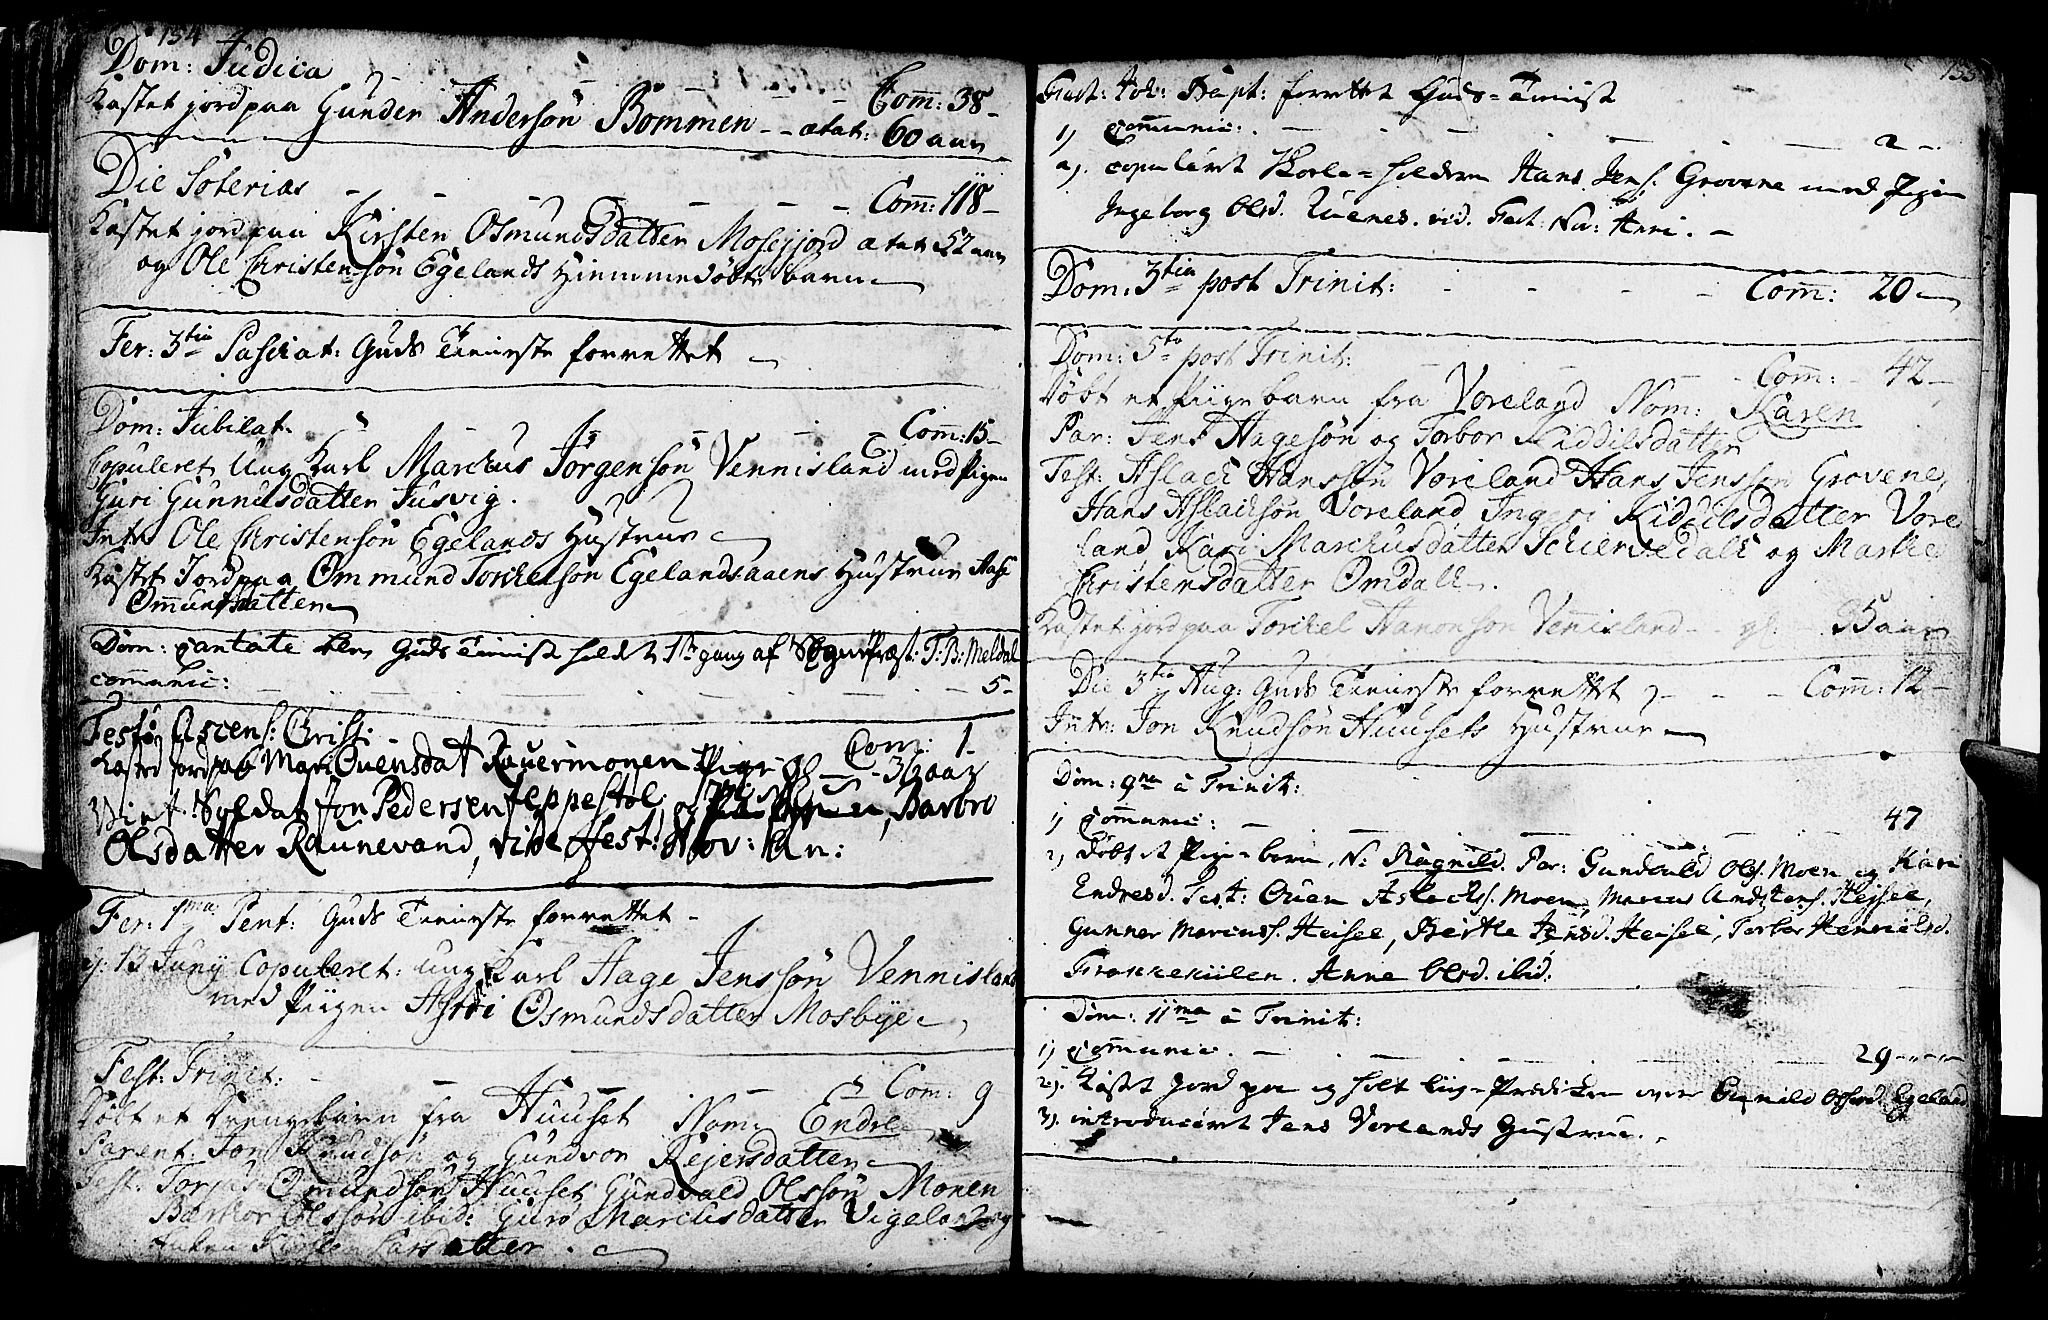 134
Dom: Judica - - - Com: 38 -
Kastet jord paa Gunder Andersøn Bommen - - ætat: 60 aar
Die Soterias - - - - - Com: 118 -
Kastet jord paa Kirsten Osmundsdatter Mosefjord ætat 52 aar
og Ole Christensøn Egelands Hiemmedøbte barn
Fer: 3tia Paschat: Guds Tieniste forrettet -
Dom: Jubilat. - - - - Com: 15 -
Copuleret Ung Karl Marchus Jørgensøn Vennisland med Pigen
Guri Gunnulsdatter Jusvig.
Intr: Ole Christensøn Egelands Hustrue
Kastet Jord paa Ommund Torkelsøn Egelandsaaens Hustrue Aase
Omundsdatter
Dom: Cantate blev Guds Tieniste holdt 1te gang af Sogne Præst: T: B: Meldal
communic: - - - - 5 -
Festo Ascens: Christi. - Com: 1 -
Kasted Jord paa Mari Ouensdat Rauermonen Pige gl - - 36 aar
Soldat Jon Pedersen og Barbro
Olsdatter Raunevand, vide Fest: Nov: An:
Fer: 1ma Pent: Guds Tieniste forrettet -
d: 13 Junij Copuleret: ung Karl Aage Jenssøn Vennisland
med Piigen Astri Osmundsdatter Mosbye
Fest: Trinit: - - - Com: 9
Døbt et Drengebarn fra Huuset Nom: Endre
Parent: Jon Knudsøn og Gundvor Rejersdatter
Test: Omundsøn Huuset Gundvald Olssøn Monen
Olssøn ibid: Guro Marcusdatter Vigeland og
Kirsten Larsdatter.
135
Fest: Joh: Bapt: forrettet Guds-Tienist
1) Communic: - - - - 2 -
2). copulèret Skole-holderen Hans Jens: Grovene med Pigen
Ingeborg Olsd. vid. Fest: No: Anni. -
Dom: 3tia post Trinit: - - - - Com: 20
Dom: 5ta post Trinit: - - Com: 42 -
Døbt et Piige barn fra Voreland Nom: Karen
Par: Jens Aagesøn og Torbor Kiddilsdatter
Test: Aslach Hanssøn Voreland Hans Jenssøn Grovene,
Hans Aslachsøn Voreland Ingeri Kiddilsdatter Vore
land Kari Marchusdatter og Marthe
Christensdatter Omdall.
Kastet jord paa Torkel Aanonsøn Venisland - gl: aar
Die 3tia Aug: Guds Tieniste forrettet - - - Com: 12 -
Intr: Jon Knudsøn Huusets Hustrue
Dom: 9na à Trinit:
1) Communic: - - - - 47
2) Døbt et Pige-barn, N: Ragnild. Par: Gundvuld Ols. Moen og Kari
Endresd. Test: Ouen Aslachs. Moen, Marcus Heisel,
Gunner Marcuss. Heisel, Birthe Jensd. Heisel, Torbor Henriksd.
Anne Olsd. ibid:
Dom: 11ma à Trinit:
1) Communic. - - - - 29 - - - -
2). Kastet Jord paa og holt liig-Prædiken over Gunild Egeland
3). introducèret Jens Vorlands Hustrue. -